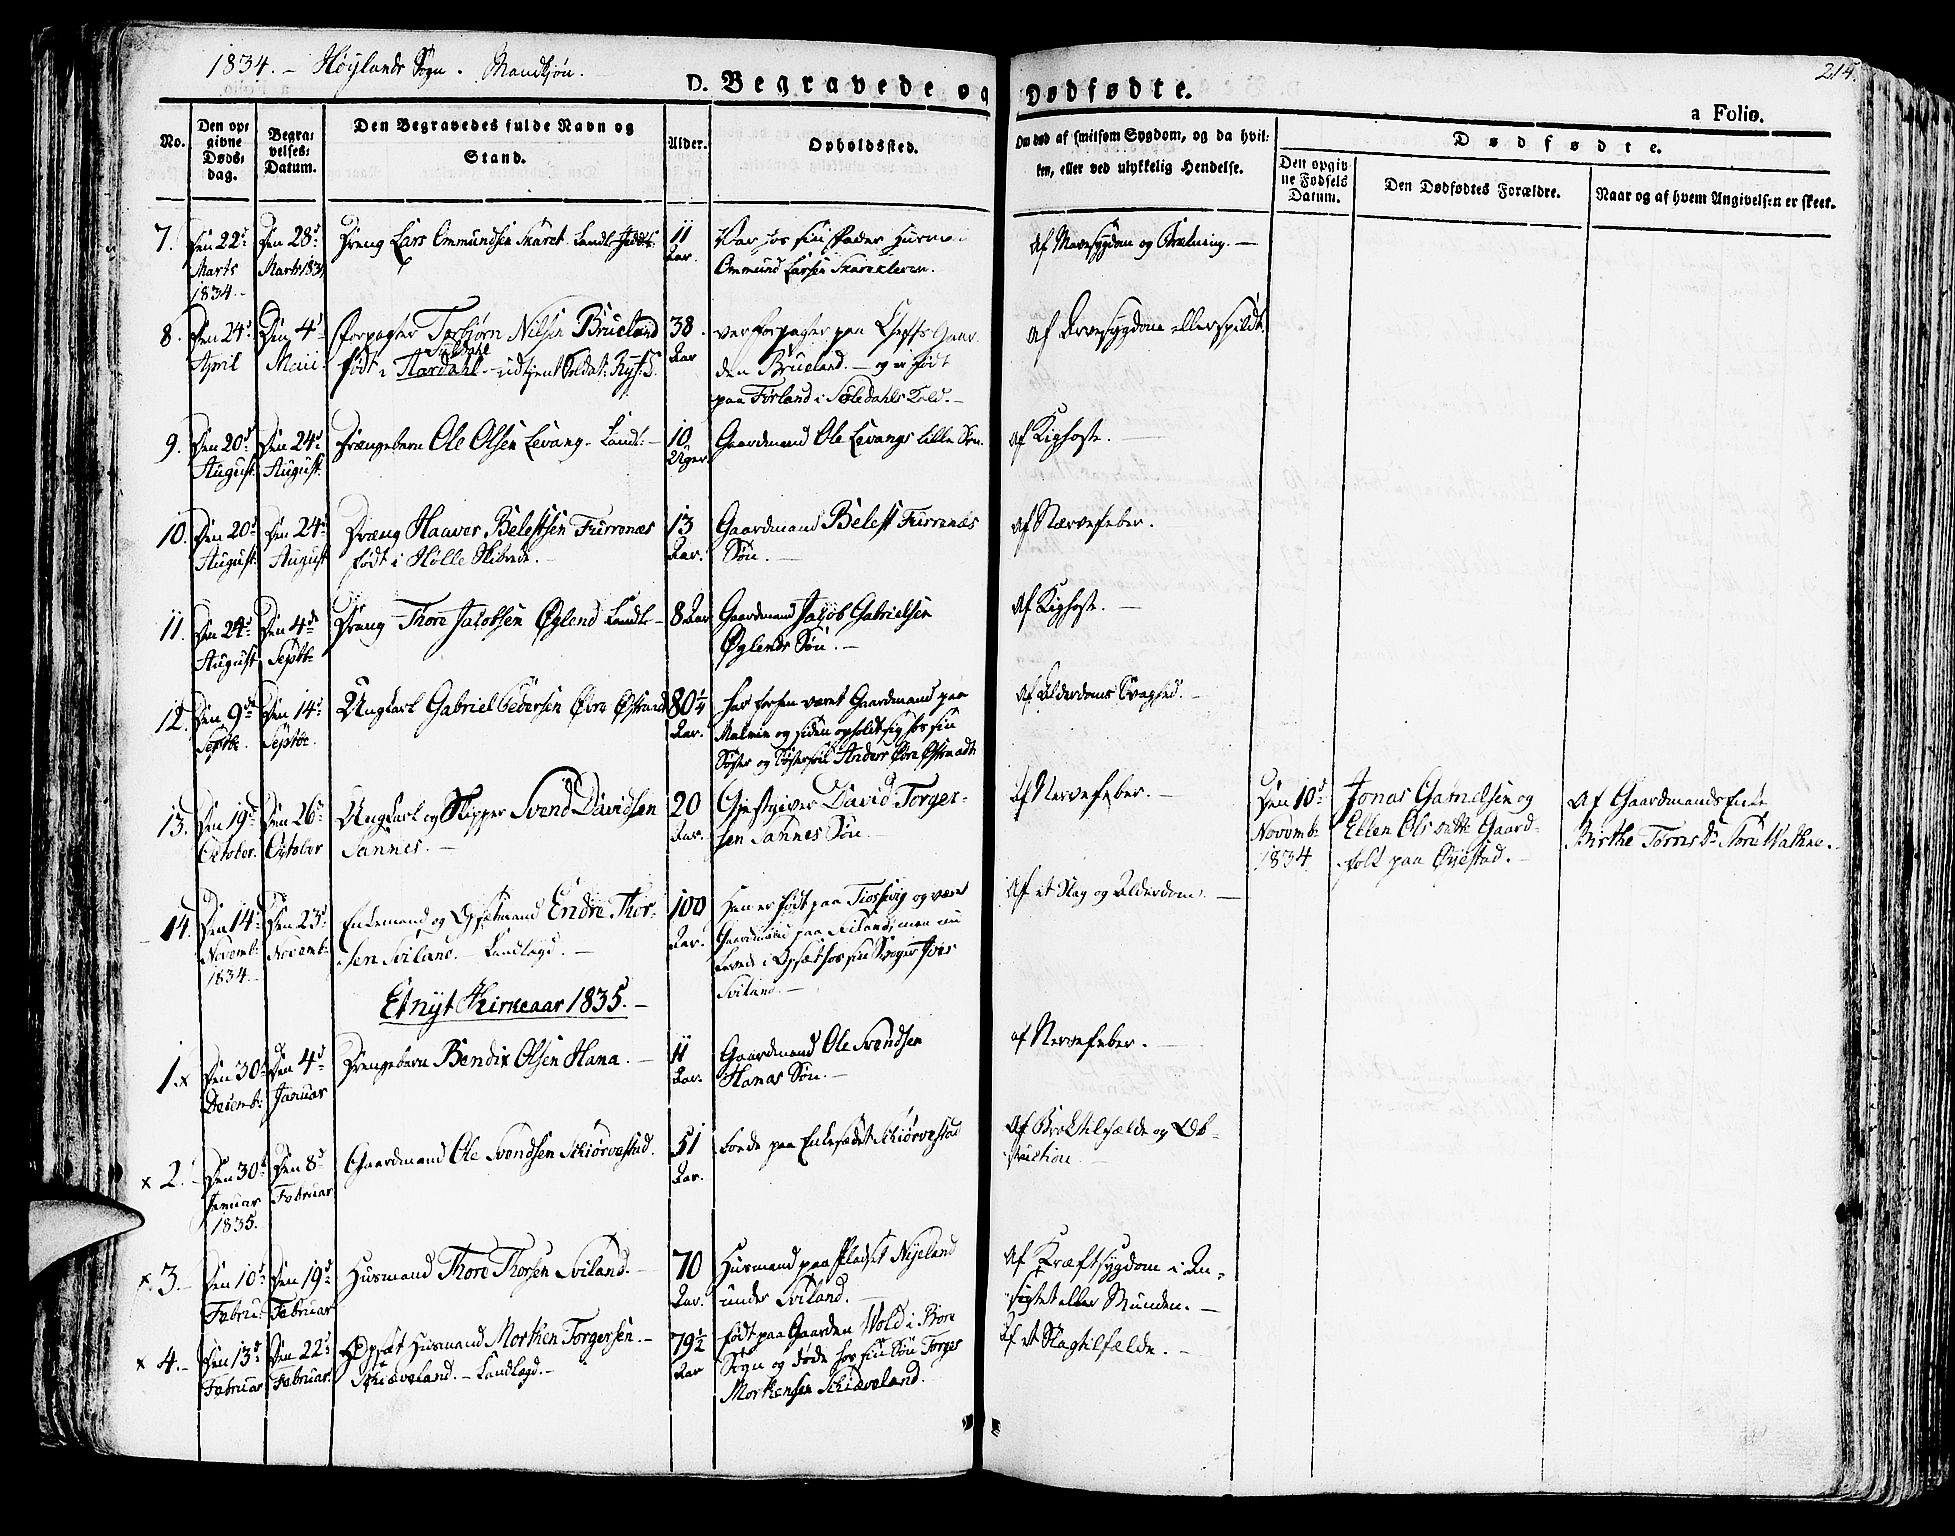 1834. – Høylands Sogn. Mandkjøn.
D. Begravede og Dødfødte.
214.
a Folio.
No.
Den opgivne Døds-dag.
Begravelses-Datum.
Den Begravedes fulde Navn og Stand.
Alder.
Opholdssted.
Om død af smitsom Sygdom, og da hvilken, eller ved ulykkelig Hendelse.
Dødfødte.
Den opgivne Fødsels Datum.
Den Dødfødtes Forældre.
Naar og af hvem Angivelsen er skeet.
7. Den 22d Marts 1834. –
Den 28d Marts 1834
Dreng Lars Ommundsen Skaret
11 Aar.
Var hos sin Fader Husm.
Ommund Larsen
Af Mavesygdom og Brækning. –
8. Den 24d April
Den 4d Maii
Forpagter Torbjørn Nilsen Brueland
født i Aardahl – udtjent Soldat:
Suldahl
38 Aar
var forpagter paa
den Brueland. – og er født
paa Førland i
9. Den 20d August
Den 24d August.
Drængebarn Ole Olsen Levang – Landl. –
10 Uger.
Gaardmand Ole Levangs lille Søn.
Af Kighoste. –
10. Den 20d August.
Den 24d August
Dræng Haaver Belestsen Furrenæs
født i Hølle Skibrede. –
13 Aar.
Gaardmand Belest Furrenæs
Søn. –
Af Nærvefeber.
11. Den 24d August
Den 4de Septbr
Dræng Thore Jacobsen Øglend Landl. –
8 Aar
Gaardmand Jacob Gabrielsen
Øglends Søn. –
Af Kighoste. –
12. Den 9de Septbr.
Den 14d Septbr.
Ungkarl Gabriel Pedersen Øvre Østraad
80 1/4 Aar.
har forhen været Gaardmand paa
og siden opholdt sig hos sin
Søster og Anders Øvre Østraadt
Af Alderdoms Svaghed. –
13. Den 19d October.
Den 26d October
Ungkarl og Skipper Svend Davidsen
Sannes. –
20 Aar.
Gjestgiver David Torger-
sen Sannes Søn.
Af Nervefeber. –
Den 10d Novembr 1834
Jonas Gabrielsen og
Ellen Olsdatter Gaard-
folk paa Øiestad. –
Af Gaardmands Enke
Birthe Tørresdr Store Wathne.
14. Den 14d Novembr 1834. –
Den 23d Novembr
Enkemand og Opsetmand Endre Thor-
sen Sviland. – Landlagd. –
100 Aar.
Han er født paa og været
Gaardmand paa men nu
levede i Opsæt hos sin Sviger
Sviland. –
Af et Slag og Alderdom. –
Et nyt Kirkeaar 1835. –
1. x Den 30 Decembr
Den 4d Januar
Drengebarn Bendix Olsen Hana. –
11 Aar.
Gaardmand Ole Svendsen
Hanas Søn. –
af Nervefeber. –
x 2. – Den 30d Januar 1835.
Den 8d Februar
Gaardmand Ole Svendsen Skiørvestad.
51 Aar.
boede paa Enkesædet Skiørvestad
Af Broktilfælde og Ob-
struction. –
x. 3 – Den 10d Febru:
Den 19d Februar
Husmand Thore Thorsen Sviland. –
70 Aar.
Husmand paa Pladset Nyeland
under Sviland. –
Af Kræftsygdom i An-
sigtet eller Munden. –
x 4. – Den 13d Februar
Den 22d Februar.
Opsæt Husmand Morthen Torgersen. –
Skiæveland. – Landlagd. –
79 1/2 Aar
født paa Gaarden Wold i Bore
Sogn og døde hos sin Søn Torger
Morthensen Skiæveland.
Af et Slagtilfælde. –